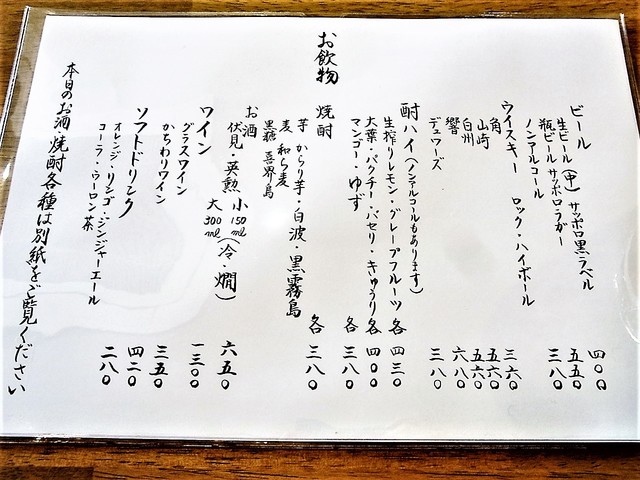 お飲物
ビール
生ビール(中) サッポロ黒ラベル 四〇〇
瓶ビール サッポロラガー 五五〇
ノンアルコール 三八〇
ウイスキー ロック・ハイボール
角 三六〇
山崎 五六〇
白州 五六〇
響 六八〇
デュワーズ 三八〇
酎ハイ(ノンアルコールもあります)
生搾りレモン・グレープフルーツ 各 四三〇
大葉・パクチー・パセリ・きゅうり 各 四〇〇
マンゴー・ゆず 各 三八〇
焼酎
芋 からり芋・白波・黒霧島 各 三八〇
麦 和ら麦
黒糖 喜界島
お酒
伏見・英勲 小150ml(冷・燗) 六五〇
大300ml 一三〇〇
ワイン
グラスワイン 三五〇
かちわりワイン 四二〇
ソフトドリンク
オレンジ・リンゴ・ジンジャーエール 二八〇
コーラ・ウーロン茶
本日のお酒・焼酎各種は別紙をご覧ください